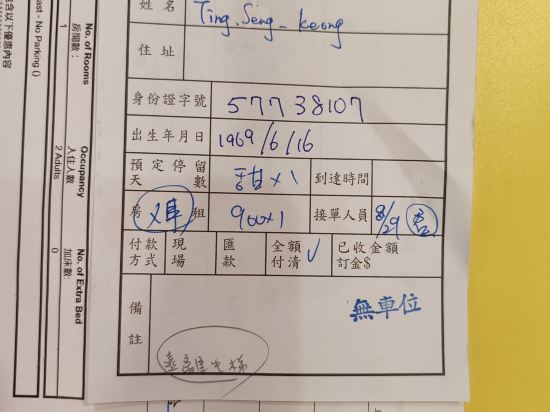 姓名 Ting. Seng - Keong
住址
身份證字號 57738107
出生年月日 1969/6/16
預定停留天數 甜x1 到達時間
房租 900x1 接單人員 8/29
付款方式 現場 匯款 全額付清 ✓ 已收金額訂金$
備註 無車位
含以下優惠內容
ast - No Parking ()
No. of Rooms
房間數:
1
Occupancy
入住人數
2 Adults
No. of Extra Bed
加床數:
0